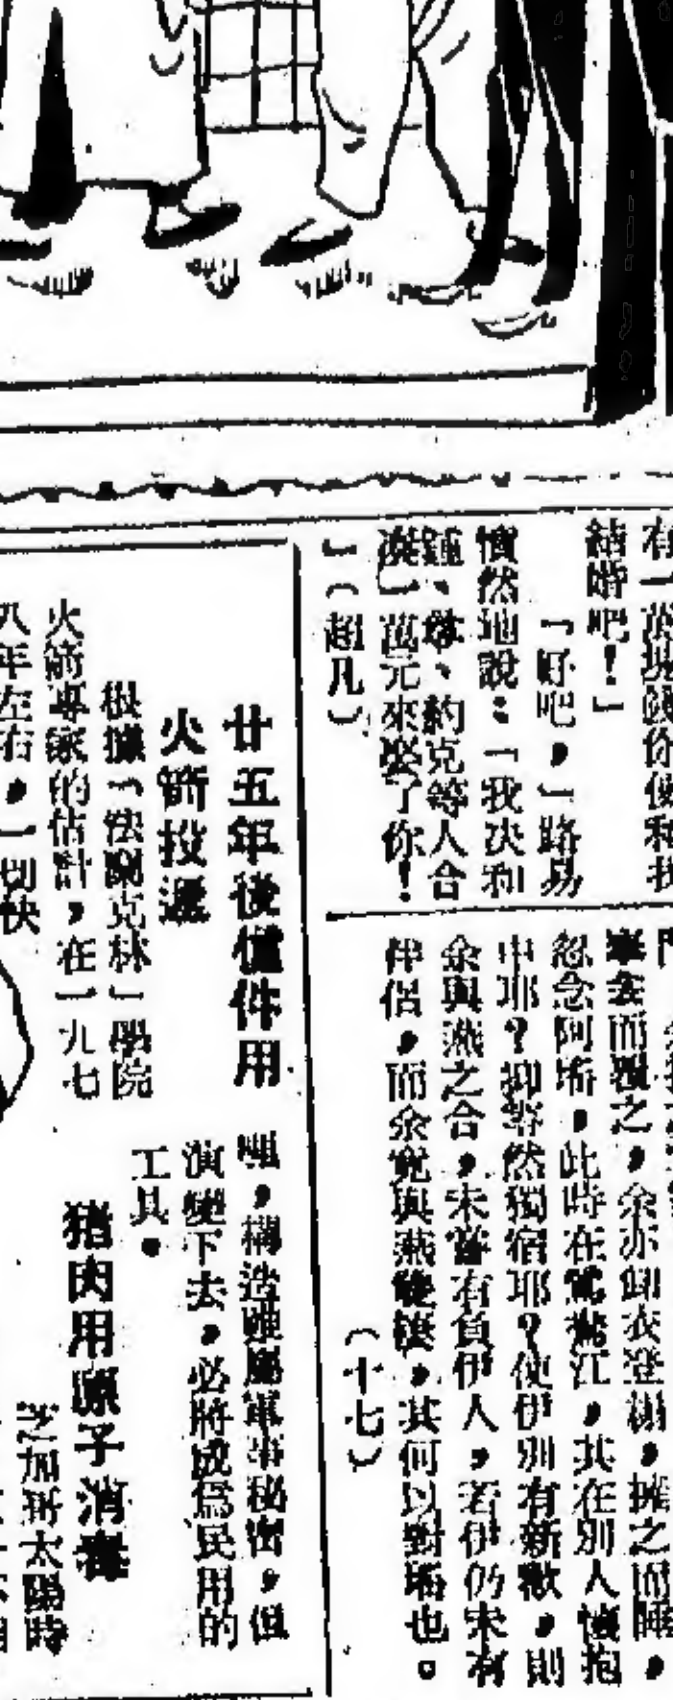 有一萬塊錢你便和我
結婚吧！」
「好吧，」路易
憤然地說：「我決和
鍾、約克等人合
湊一萬元來娶了你！
」（超凡）
而覆之，余亦卸衣登榻，擁之而睡，
忽念阿垢，此時在鴛鴦江，其在別人懷抱
中耶？抑客然獨宿耶？使伊別有新歡，則
余與燕之合，未嘗有負伊人，若伊仍未有
伴侶，而余竟與燕雙棲，其何以對垢也。
（十七）
廿五年後郵件用
火箭投遞
根據「法蘭克林」學院
火箭專家的估計，在一九七
八年左右，一切快
，構造雖屬軍事秘密，但
演變下去，必將成爲民用的
工具。
猪肉用原子消毒
芝加哥太陽時